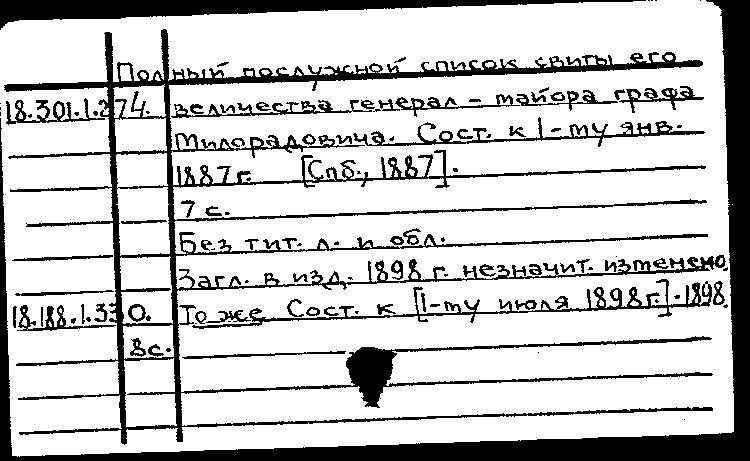 Полный послужной список свиты его
18.301.1.274. величества генерал-майора графа
Милорадовича. Сост. к 1-му янв.
1887 г. [Спб., 1887].
7 с.
Без тит. л. и обл.
Загл. в изд. 1898 г. незначит. изменено.
18.188.1.330. То же Сост. к [1-му июля 1898 г.]. 1898.
8 с.